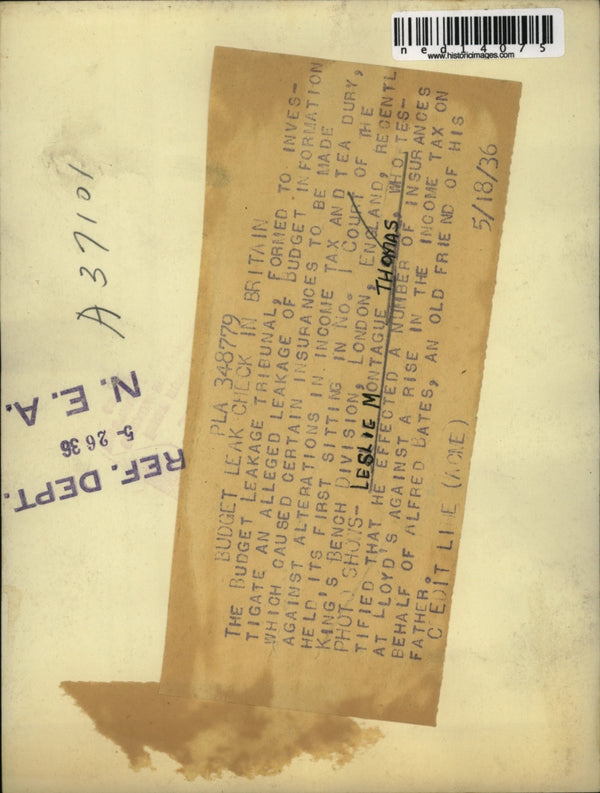 ned14075
www.historicimages.com
A37101
N. E. A.
5-26 36
REF. DEPT.
PLA 348779
BUDGET LEAK CHECK IN BRITAIN
THE BUDGET LEAKAGE TRIBUNAL, FORMED TO INVES-
TIGATE AN ALLEGED LEAKAGE OF BUDGET INFORMATION
WHICH CAUSED CERTAIN INSURANCES TO BE MADE
AGAINST ALTERATIONS IN INCOME TAX AND TEA DURY,
HELD ITS FIRST SITTING IN NO. 1 COURT OF THE
KING'S BENCH DIVISION, LONDON, ENGLAND, RECENTL
PHOTO SHOWS- LESLIE MONTAGUE THOMAS, WHO TES-
TIFIED THAT HE EFFECTED A NUMBER OF INSURANCES
AT LLOYD'S AGAINST A RISE IN THE INCOME TAX ON
BEHALF OF ALFRED BATES, AN OLD FRIEND OF HIS
FATHER.
CREDIT LINE (ACME)
5/18/36